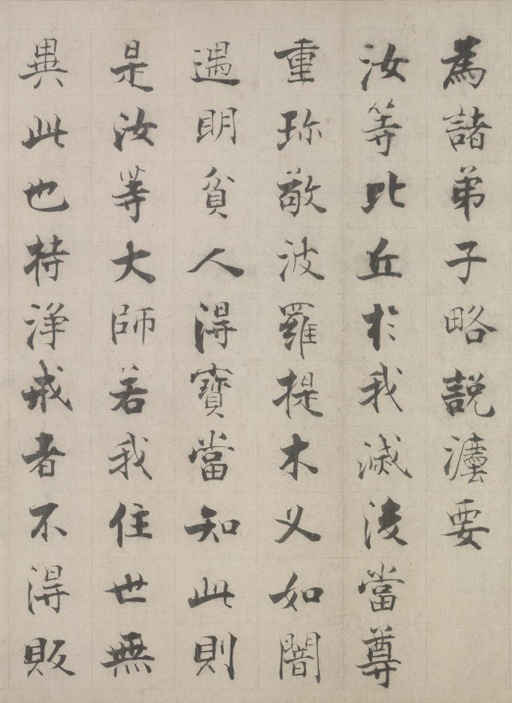 為諸弟子略說灋要
汝等比丘於我滅後當尊
重珎敬波羅提木义如闇
遇明貧人得寶當知此則
是汝等大師若我住世無
異此也持淨戒者不得販